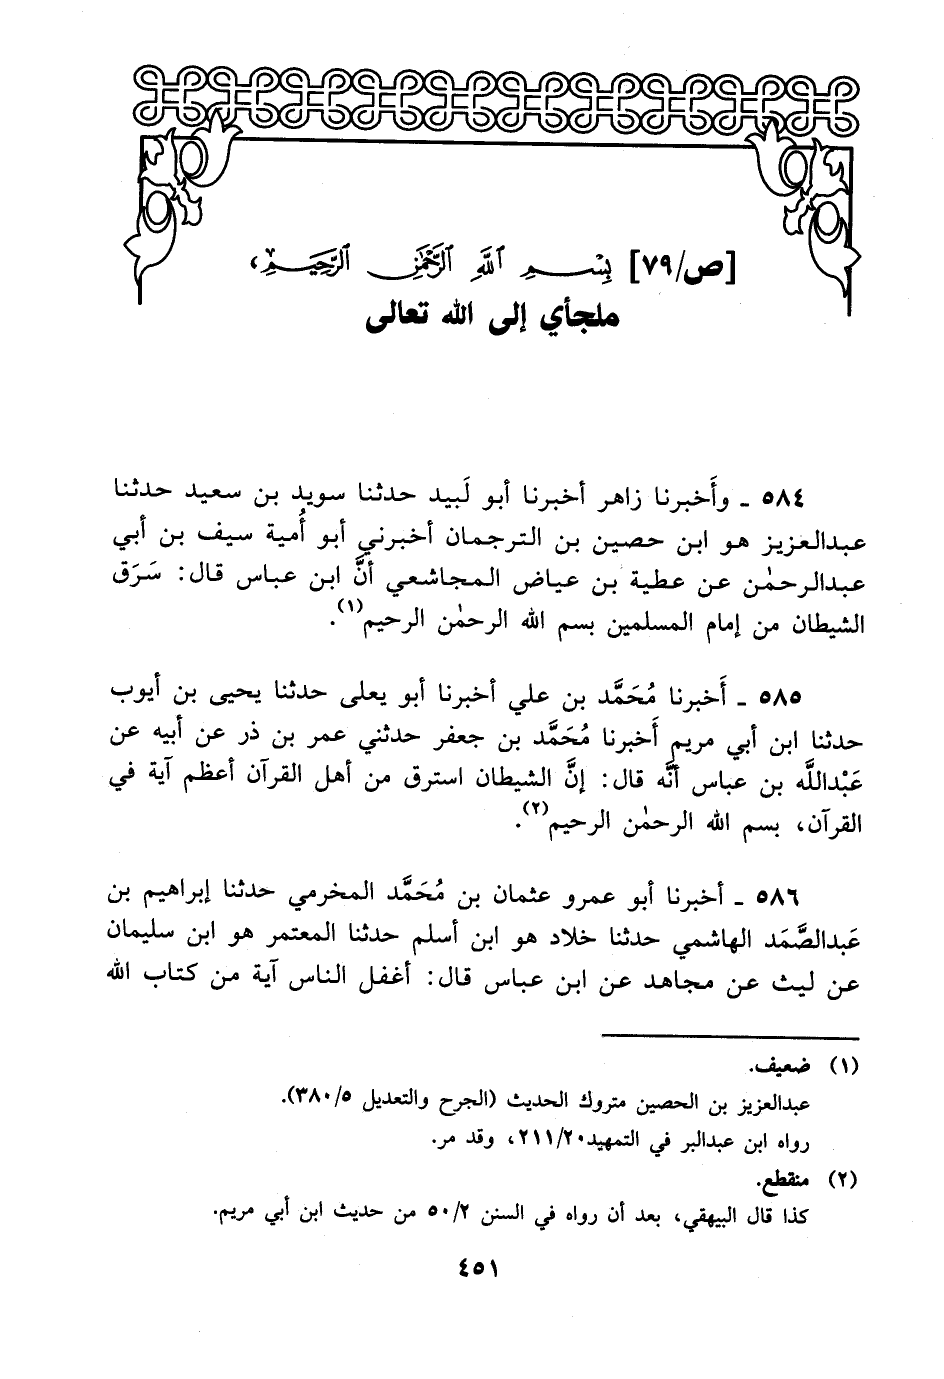 [ص/٧٩] بِسْمِ اللَّهِ الرَّحْمَٰنِ الرَّحِيمِ،
ملجأي إلى الله تعالى
٥٨٤ ـ وأَخبرنا زاهر أخبرنا أبو لَبيد حدثنا سويد بن سعيد حدثنا
عبدالعزيز هو ابن حصين بن الترجمان أخبرني أبو أُمية سيف بن أبي
عبدالرحمٰن عن عطية بن عياض المجاشعي أنَّ ابن عباس قال: سَرَق
الشيطان من إمام المسلمين بسم الله الرحمٰن الرحيم(١).
٥٨٥ ـ أَخبرنا مُحَمَّد بن علي أخبرنا أبو يعلى حدثنا يحيى بن أيوب
حدثنا ابن أبي مريم أَخبرنا مُحَمَّد بن جعفر حدثني عمر بن ذر عن أبيه عن
عَبْداللَّه بن عباس أنَّه قال: إنَّ الشيطان استرق من أهل القرآن أعظم آية في
القرآن، بسم الله الرحمٰن الرحيم(٢).
٥٨٦ ـ أخبرنا أبو عمرو عثمان بن مُحَمَّد المخرمي حدثنا إبراهيم بن
عَبدالصَّمَد الهاشمي حدثنا خلاد هو ابن أسلم حدثنا المعتمر هو ابن سليمان
عن ليث عن مجاهد عن ابن عباس قال: أغفل الناس آية من كتاب الله
(١) ضعيف.
عبدالعزيز بن الحصين متروك الحديث (الجرح والتعديل ٣٨٠/٥).
رواه ابن عبدالبر في التمهيد٢١١/٢٠، وقد مر.
(٢) منقطع.
كذا قال البيهقي، بعد أن رواه في السنن ٥٠/٢ من حديث ابن أبي مريم.
٤٥١